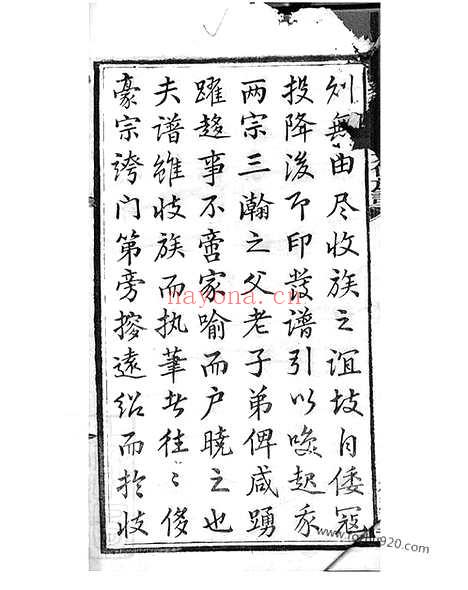 則無由尽收族之谊故自倭寇
投降後即印發谱引以唤起我
两宗三瀚之父老子弟俾咸踴
躍趋事不啻家喻而户晓之也
夫谱雖收族而执筆者往々侈
豪宗誇门第旁搜遠绍而於收
nayona.cn